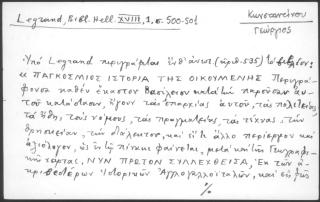 Legrand, Bibl. Hell. XVIII, 1, σ. 500-501
Κωνσταντίνου
Γεώργιος
Ὑπὸ Legrand περιγράφεται ἐνθ' ἀνωτ. (ἀριθ. 535) τὸ βιβλίον:
« ΠΑΓΚΟΣΜΙΟΣ ΙΣΤΟΡΙΑ ΤΗΣ ΟΙΚΟΥΜΕΝΗΣ Περιγρά-
φουσα καθ' ἕκαστον Βασίλειον κατὰ τὴν παροῦσαν αὐ-
τοῦ κατάστασιν, ἤγουν τὰς ἐπαρχίας αὐτοῦ, τὰς πολιτείας,
τὰ ἤθη, τοὺς νόμους, τὰς πραγματείας, τὰς τέχνας, τὴν
θρησκείαν, τὴν διάλεκτον, καὶ εἴ τι ἄλλο περίεργον καὶ
ἀξιόλογον, ὡς ἐν τῷ πίνακι φαίνεται, μετὰ καὶ τῆς Γεωγραφι-
κῆς χάρτας, ΝΥΝ ΠΡΩΤΟΝ ΣΥΛΛΕΧΘΕΙΣΑ, Ἐκ τῶν ἀ-
κριβεστέρων Ἱστορικῶν Ἀγγλογαλλοϊταλῶν, καὶ εἰς φῶς
%